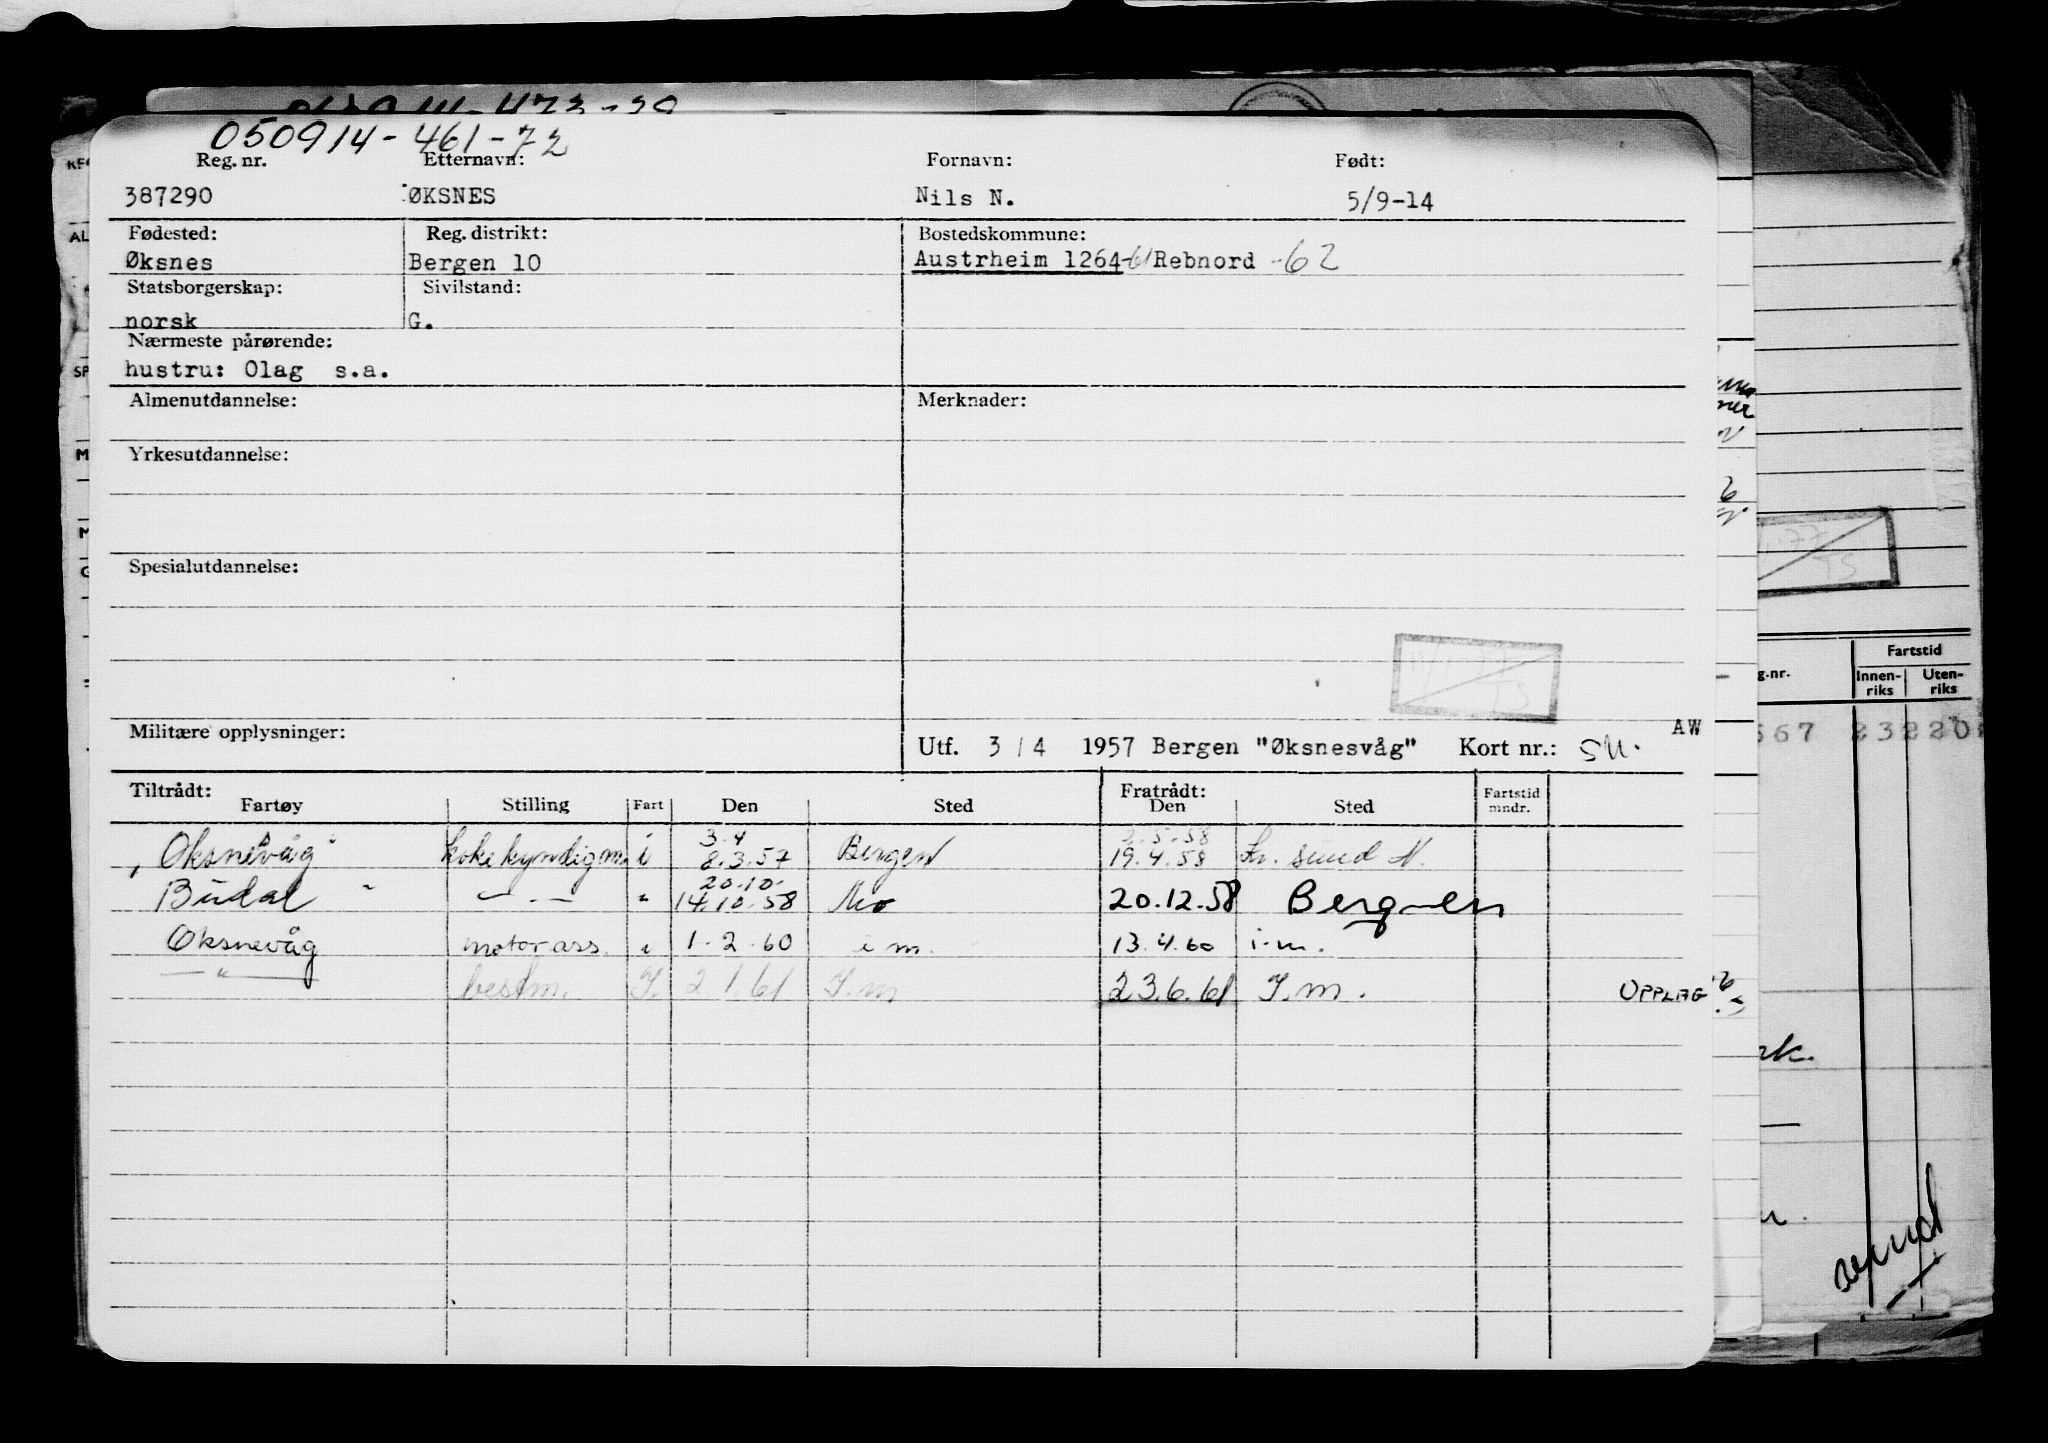 050914-461-72
Reg. nr. Etternavn: Fornavn: Født:
387290 ØKSNES Nils N. 5/9-14
Fødested: Reg. distrikt: Bostedskommune:
Øksnes Bergen 10 Austrheim 1264-61 Rebnord -62
Statsborgerskap: Sivilstand:
norsk G.
Nærmeste pårørende:
hustru: Olag s.a.
Almenutdannelse: Merknader:
Yrkesutdannelse:
Spesialutdannelse:
Militære opplysninger: Utf. 3/4 1957 Bergen "Øksnesvåg" Kort nr.: AW
Tiltrådt: Fratrådt:
Fartøy Stilling Fart Den Sted Den Sted Fartstid mndr.
3.4 2.5.58
"Øksnevåg" kokekyndig m. i 8.3.57 Bergen 19.4.58 Kr. sund N.
20.10.
Budal " — " — " 14.10.58 Mo 20.12.58 Bergen
Øksnevåg motorass. i 1.2.60 i m. 13.4.60 i.m.
— " — bestm. I. 2.1.61 I.m 23.6.61 I.m. OPPLAG
g.nr.
Fartstid
Innen-riks Uten-riks
567 232 20